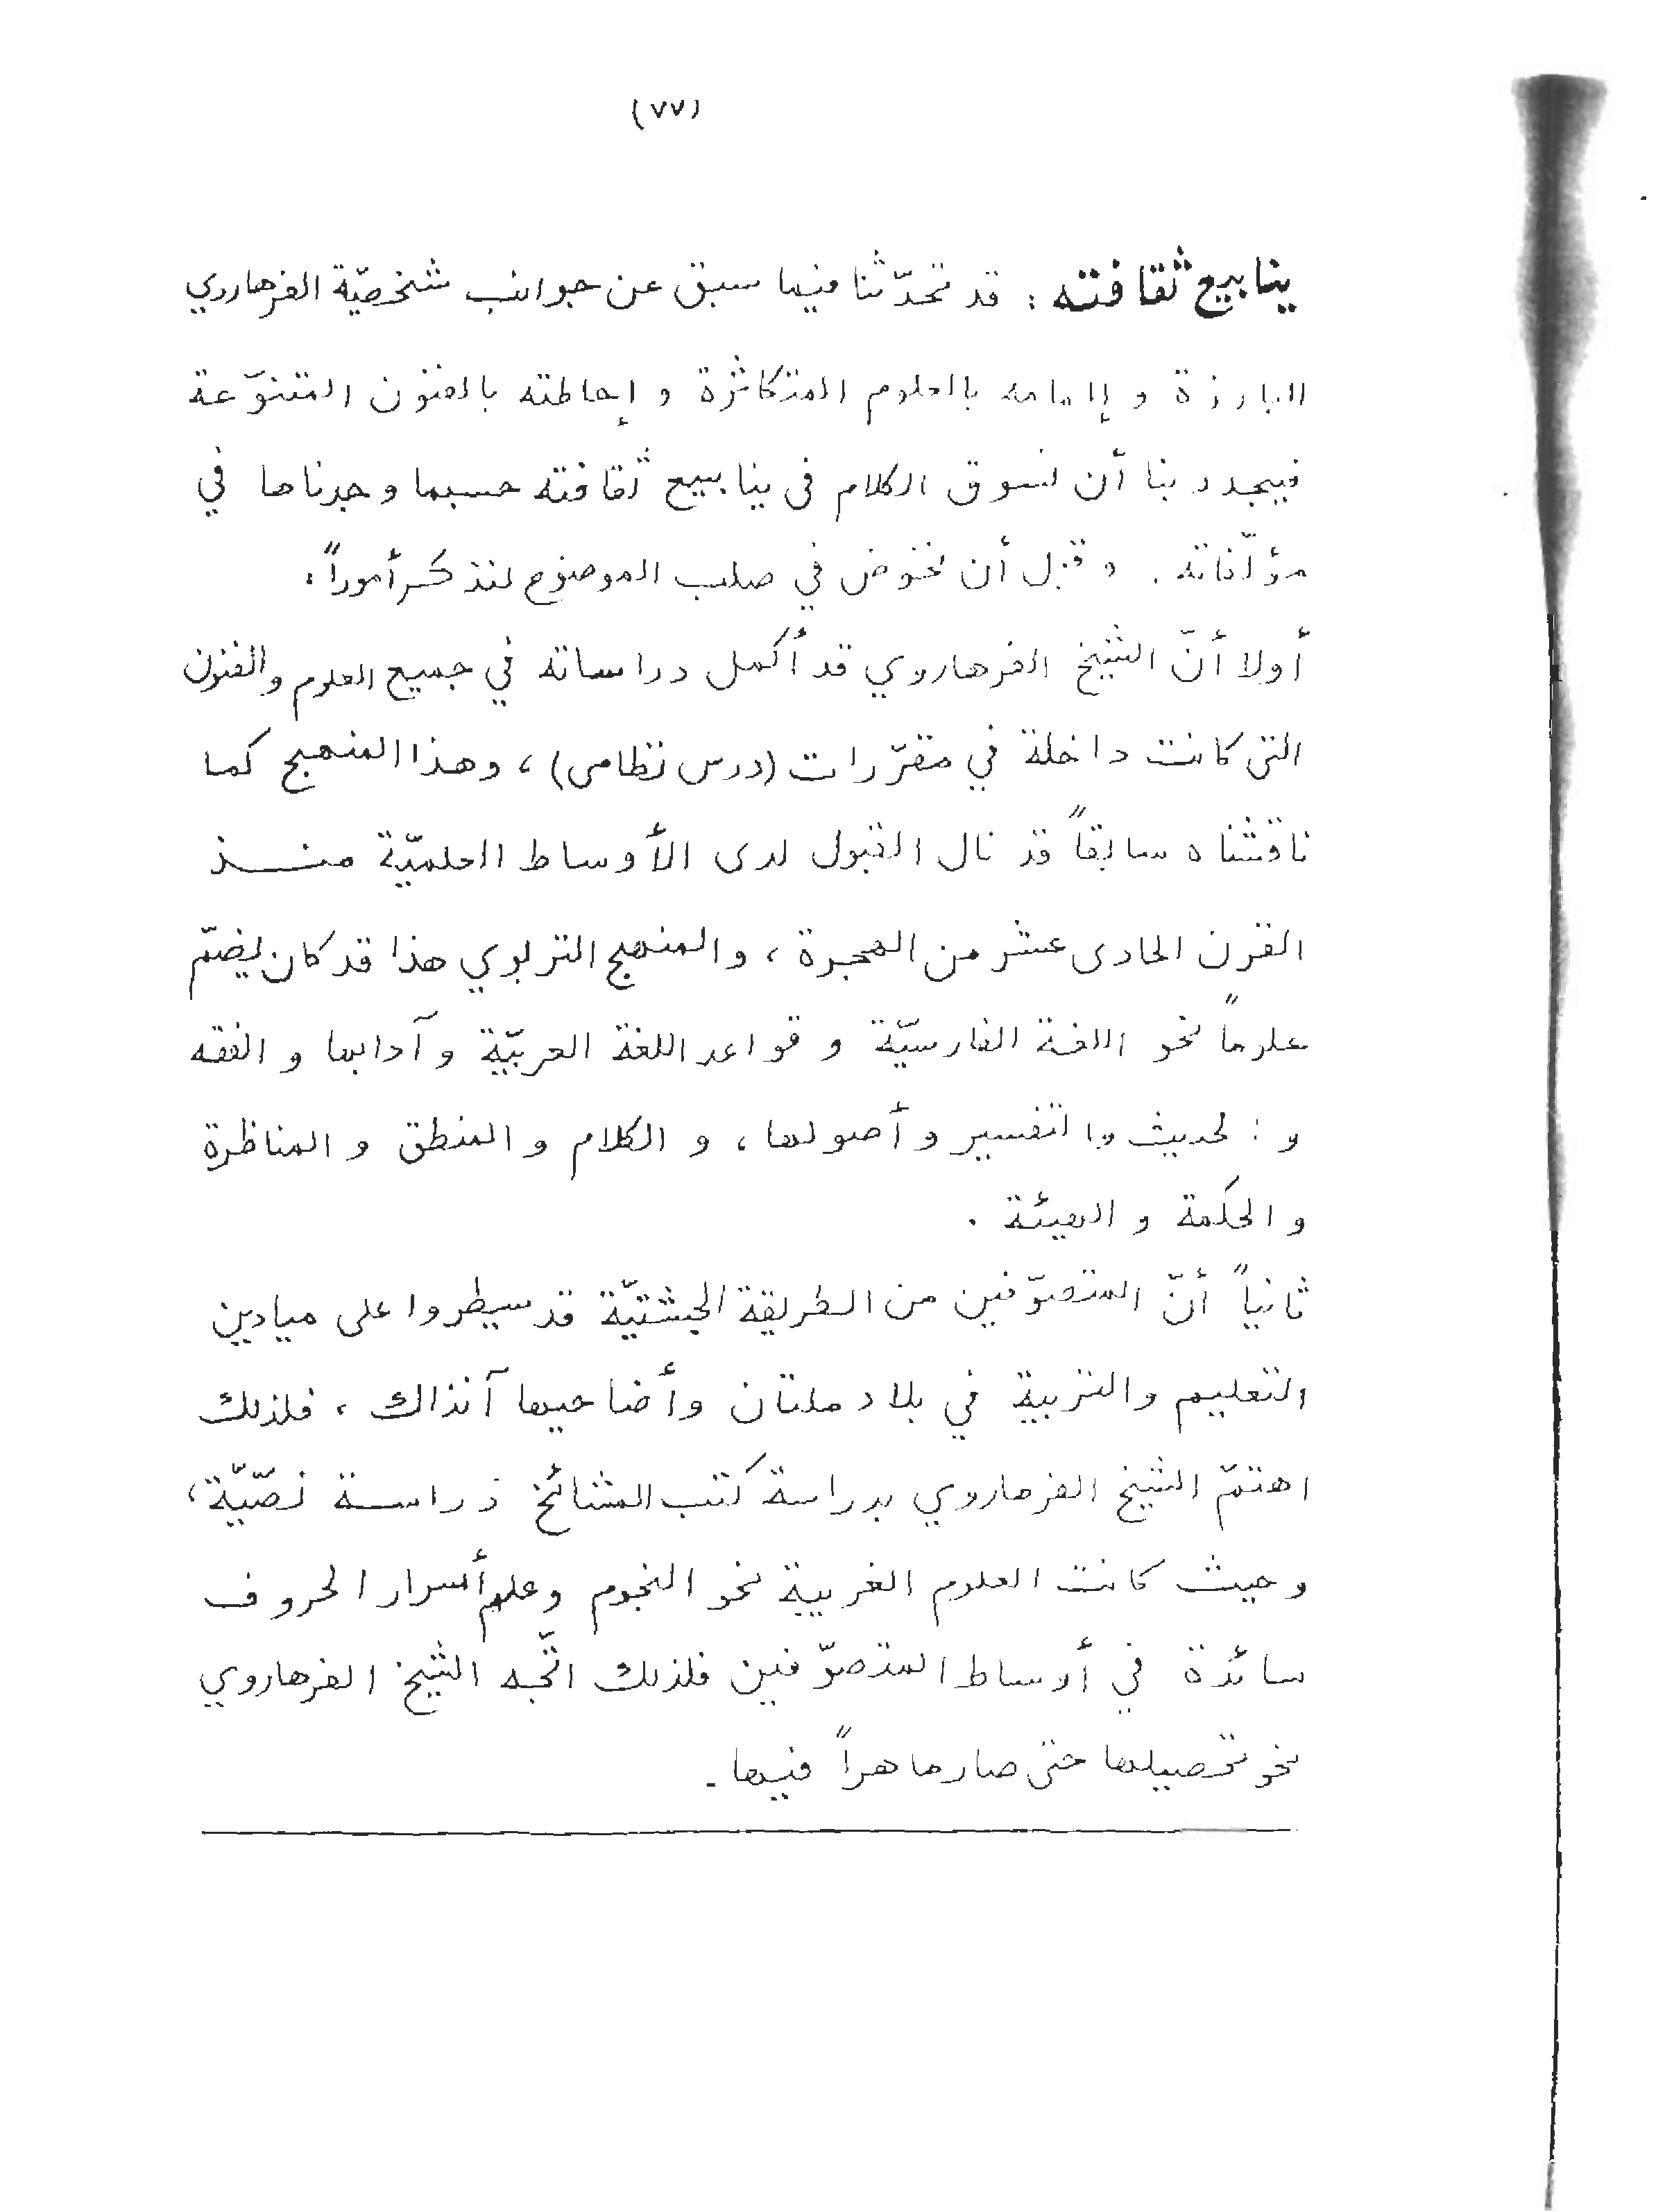 (٧٧)
ينابيع ثقافته : قد تحدّثنا فيما سبق عن جوانب شخصيّة الفرهاروي
البارزة و إلمامه بالعلوم المتكاثرة و إحاطته بالفنون المتنوّعة
فيجدر بنا أن نسوق الكلام فى ينابيع ثقافته حسبما وجدناها في
مؤلّفاته . وقبل أن نخوض في صلب الموضوع لنذكر أموراً :
أولا أنّ الشيخ الفرهاروي قد أكمل دراساته في جميع العلوم والفنون
التى كانت داخلة في مقرّرات (درس نظامى) ، وهذا المنهج كما
ناقشناه سابقاً قد نال القبول لدى الأوساط العلميّة منذ
القرن الحادى عشر من الهجرة ، والمنهج التربوي هذا قد كان يضمّ
علوماً نحو اللغة الفارسيّة و قواعد اللغة العربيّة وآدابها و الفقه
و الحديث والتفسير و أصولها ، و الكلام و المنطق و المناظرة
و الحكمة و الهيئة .
ثانياً أنّ المتصوّفين من الطريقة الجشتيّة قد سيطروا على ميادين
التعليم والتربية في بلاد ملتان وأضاحيها آنذاك ، فلذلك
اهتمّ الشيخ الفرهاروي بدراسة كتب المشائخ دراسة نصّيّة ،
وحيث كانت العلوم الغريبة نحو النجوم وعلم أسرار الحروف
سائدة في أوساط المتصوّفين فلذلك اتّجه الشيخ الفرهاروي
نحو تحصيلها حتى صار ماهراً فيها .